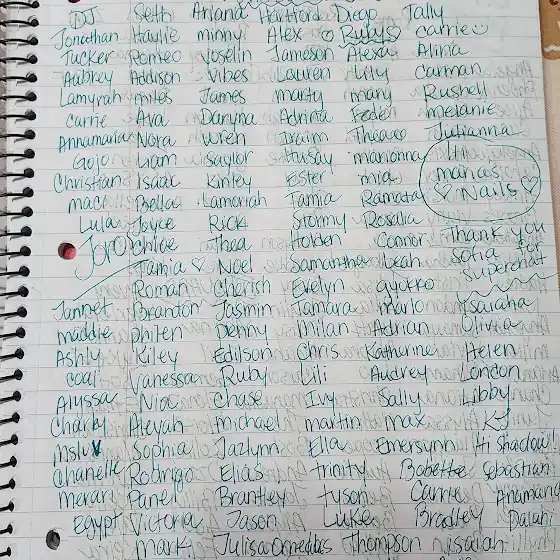 DJ Seth Ariana Hartford Diego Tally
Jonathan Haylie minny Alex Ruby carrie
Tucker Romeo Joselin Jameson Alexa Alina
Aubrey Addison Vibes Lauren Lily Carman
Lamyrah miles James marty mary Rushell
carrie Ava Daryna Adrina Feder melanie
Annamaria Nora Wren Theaco Julianna
Gojo Liam saylor marianna
Christian Isaac Kinley Ester mia marcos
Bella Lamariah Tamia Ramata Nails
Lula Joyce RICK Stormy Rosalia
Joro Chloe Thea Holden Connor Thank you
Tamia Noel Samantha Leah Sofia for
Roman Cherish Evelyn gyokko superchat
Jannet Brandon Jasmin Tamara marlo Isaiaha
maddie phiten Denny Milan Adrian Olivia
Ashly Kiley Edilson Chris Katherine Helen
coal Vanessa Ruby Lili Audrey London
Alyssa Nia Chase Ivy Sally Libby
Charly Aleyah michael martin max KJ
Sophia Jazlynn Ella Emersynn Hi Shadow!!
Chanelle Rodrigo Elias trinity Bobette Sebastian
merari Panel Brantley tyson Carrie
Egypt Victoria Jason Luke Bradley
mark Julisa Thompson isaiah